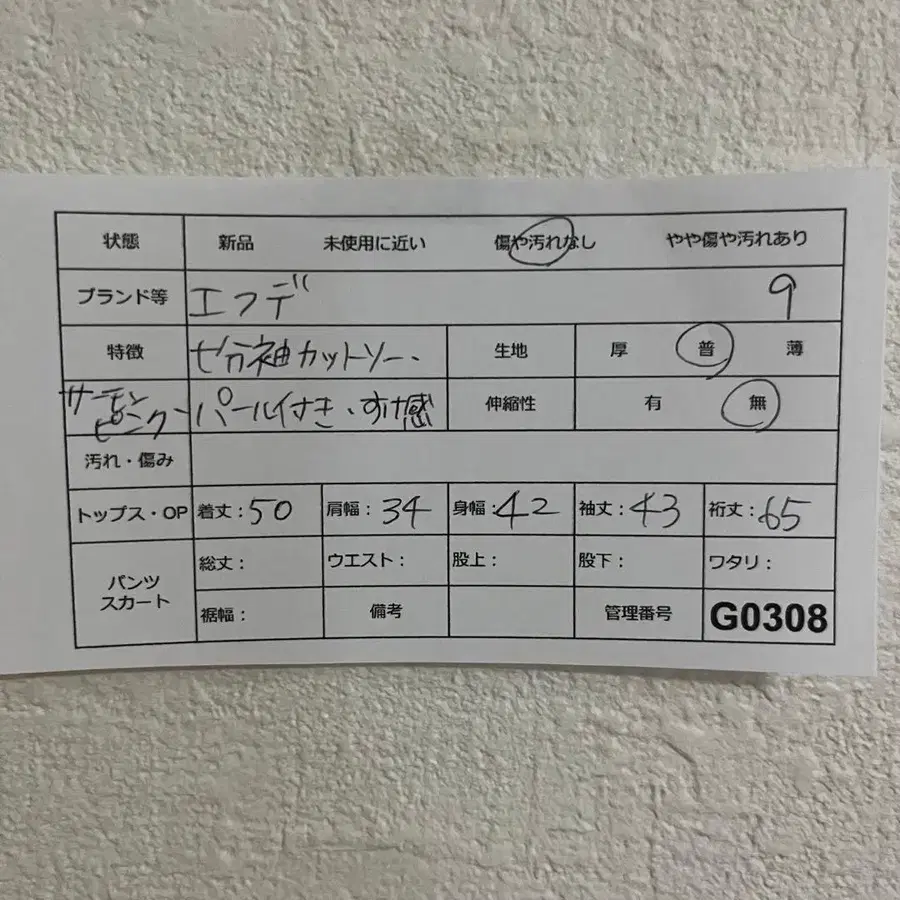 状態 新品 未使用に近い 傷や汚れなし やや傷や汚れあり
ブランド等 エフデ 9
特徴 七分袖カットソー、 生地 厚 普 薄
サーモンピンク パール付き、すけ感 伸縮性 有 無
汚れ・傷み
トップス・OP 着丈:50 肩幅:34 身幅:42 袖丈:43 裄丈:65
パンツ スカート 総丈: ウエスト: 股上: 股下: ワタリ:
裾幅: 備考 管理番号 G0308